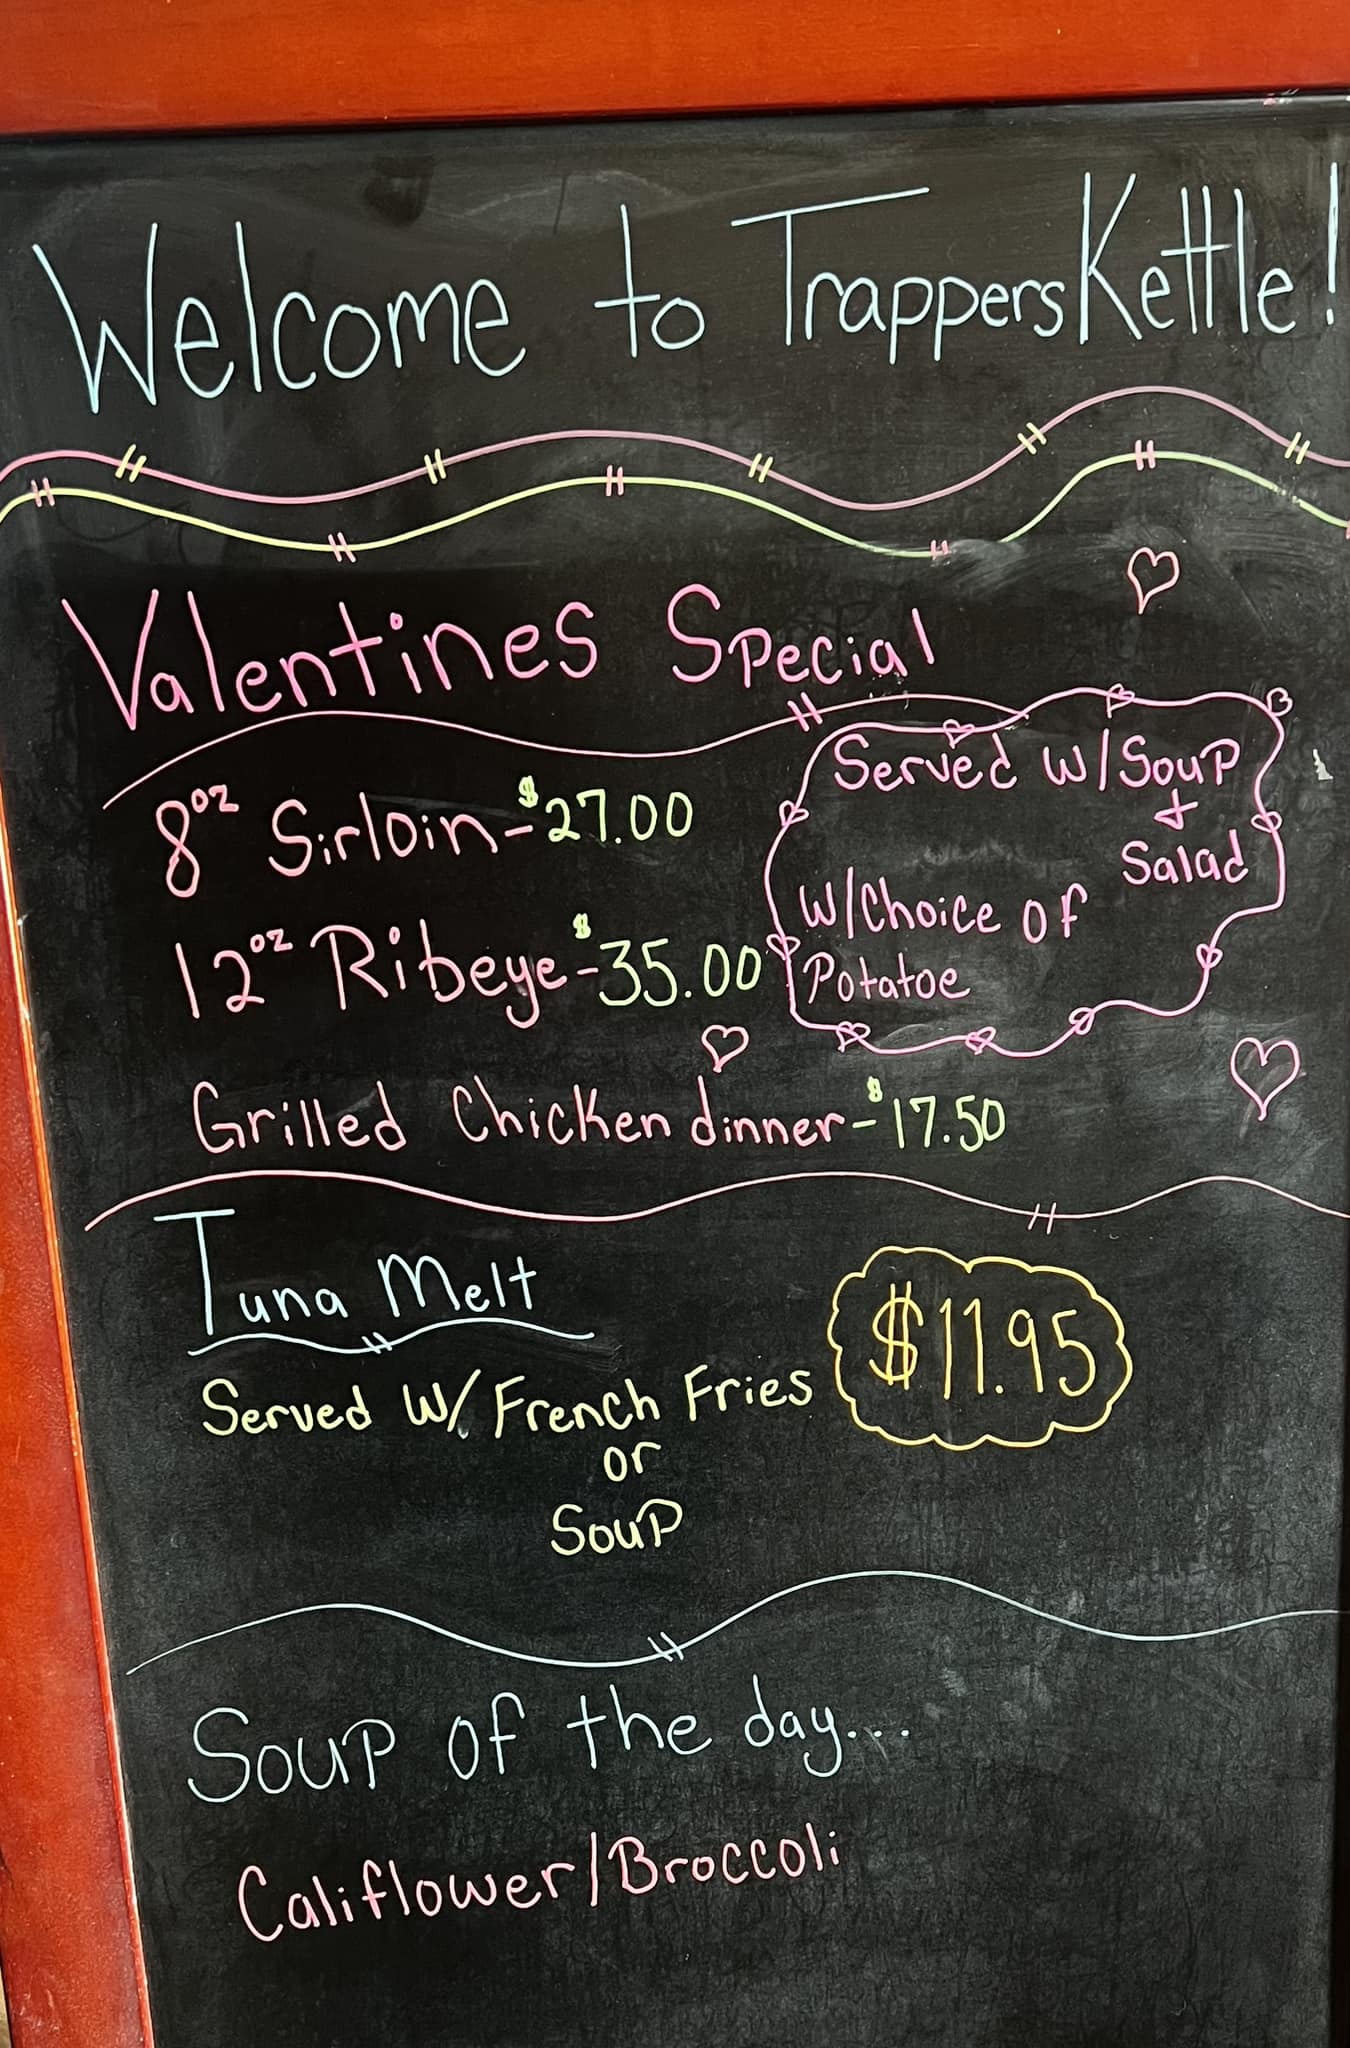 Welcome to Trappers Kettle!
Valentines Special
8oz Sirloin - $27.00
12oz Ribeye - $35.00
Grilled Chicken dinner - $17.50
Served w/Soup
+
Salad
W/Choice of
Potatoe
Tuna Melt
$11.95
Served w/ French Fries
or
Soup
Soup of the day...
Califlower/Broccoli